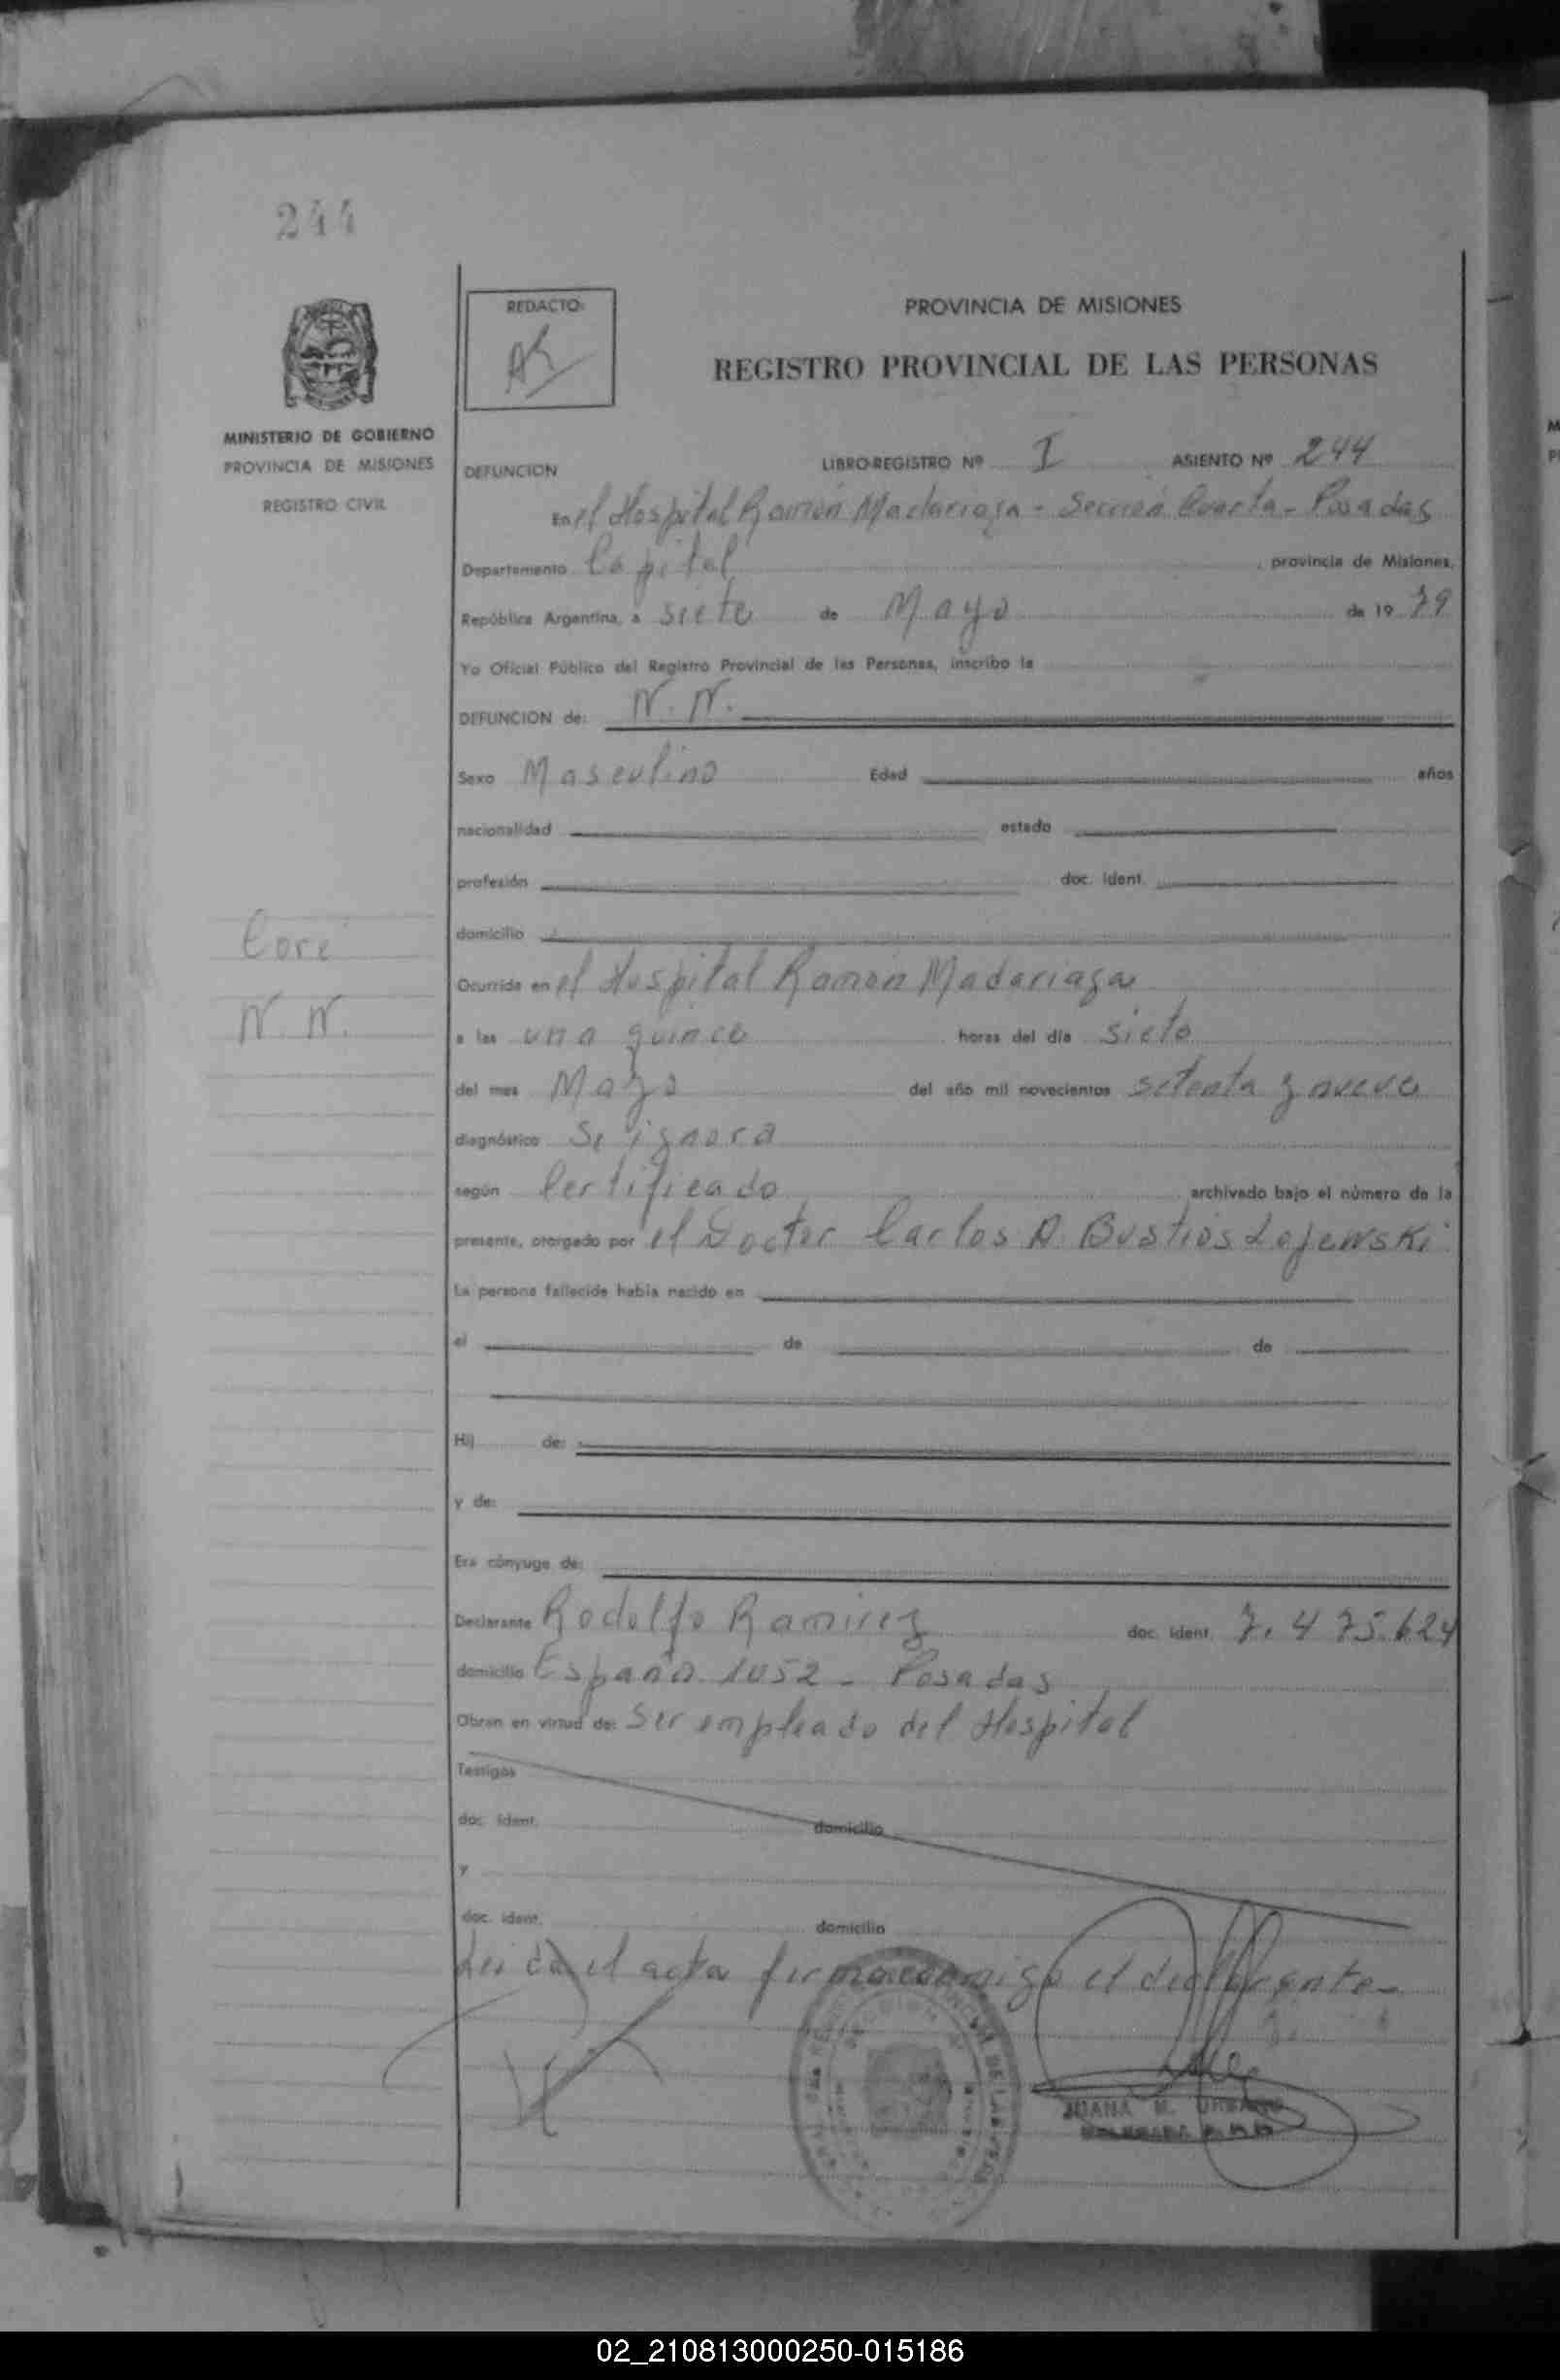 244
REDACTO:
PROVINCIA DE MISIONES
REGISTRO PROVINCIAL DE LAS PERSONAS
MINISTERIO DE GOBIERNO
PROVINCIA DE MISIONES
REGISTRO CIVIL
DEFUNCION LIBRO-REGISTRO Nº I ASIENTO Nº 244
En el Hospital Ramón Madariaga - Sección Cuarta - Posadas
Departamento Capital, provincia de Misiones,
República Argentina, a siete de Mayo de 19 79
Yo Oficial Público del Registro Provincial de las Personas, inscribo la
DEFUNCION de: N. N.
Sexo Masculino Edad años
nacionalidad estado
profesión doc. ident.
domicilio
N. N.
Ocurrida en el Hospital Ramón Madariaga
a las una quince horas del día siete
del mes Mayo del año mil novecientos setenta y nueve
diagnóstico Se ignora
según Certificado archivado bajo el número de la
presente, otorgado por el Doctor Carlos A. Bustios Lojewski
La persona fallecida había nacido en
el de de
Hij de:
y de:
Era cónyuge de:
Declarante Rodolfo Ramirez doc. ident. 7.475.624
domicilio España 1052 - Posadas
Obran en virtud de: Ser empleado del Hospital
Testigos
doc. ident. domicilio
y
doc. ident. domicilio
Leida el acta firma conmigo el declarante-
JUANA M.
02_210813000250-015186